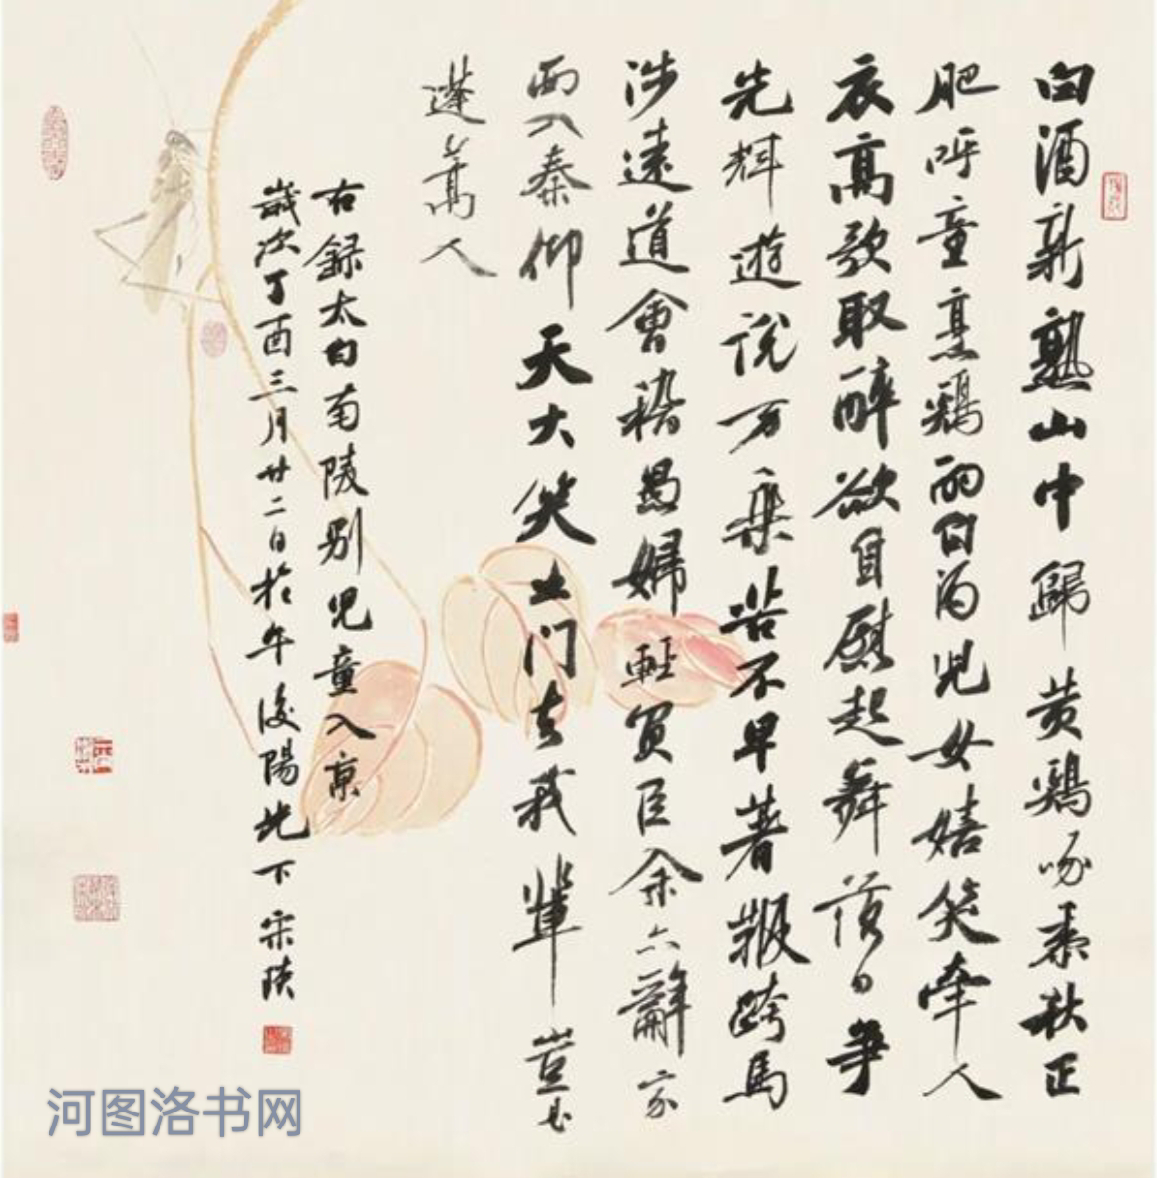 白酒新熟山中歸黄鷄啄黍秋正
肥呼童烹鷄酌白酒兒女嬉笑牽人
衣高歌取醉欲自慰起舞落日爭
光輝遊説万乘苦不早著鞭跨馬
涉遠道會稽愚婦輕買臣余亦辭家
西入秦仰天大笑出门去我輩豈是
蓬蒿人
右録太白南陵别兒童入京
歲次丁酉三月廿二日於午後陽光下宋陵
河图洛书网